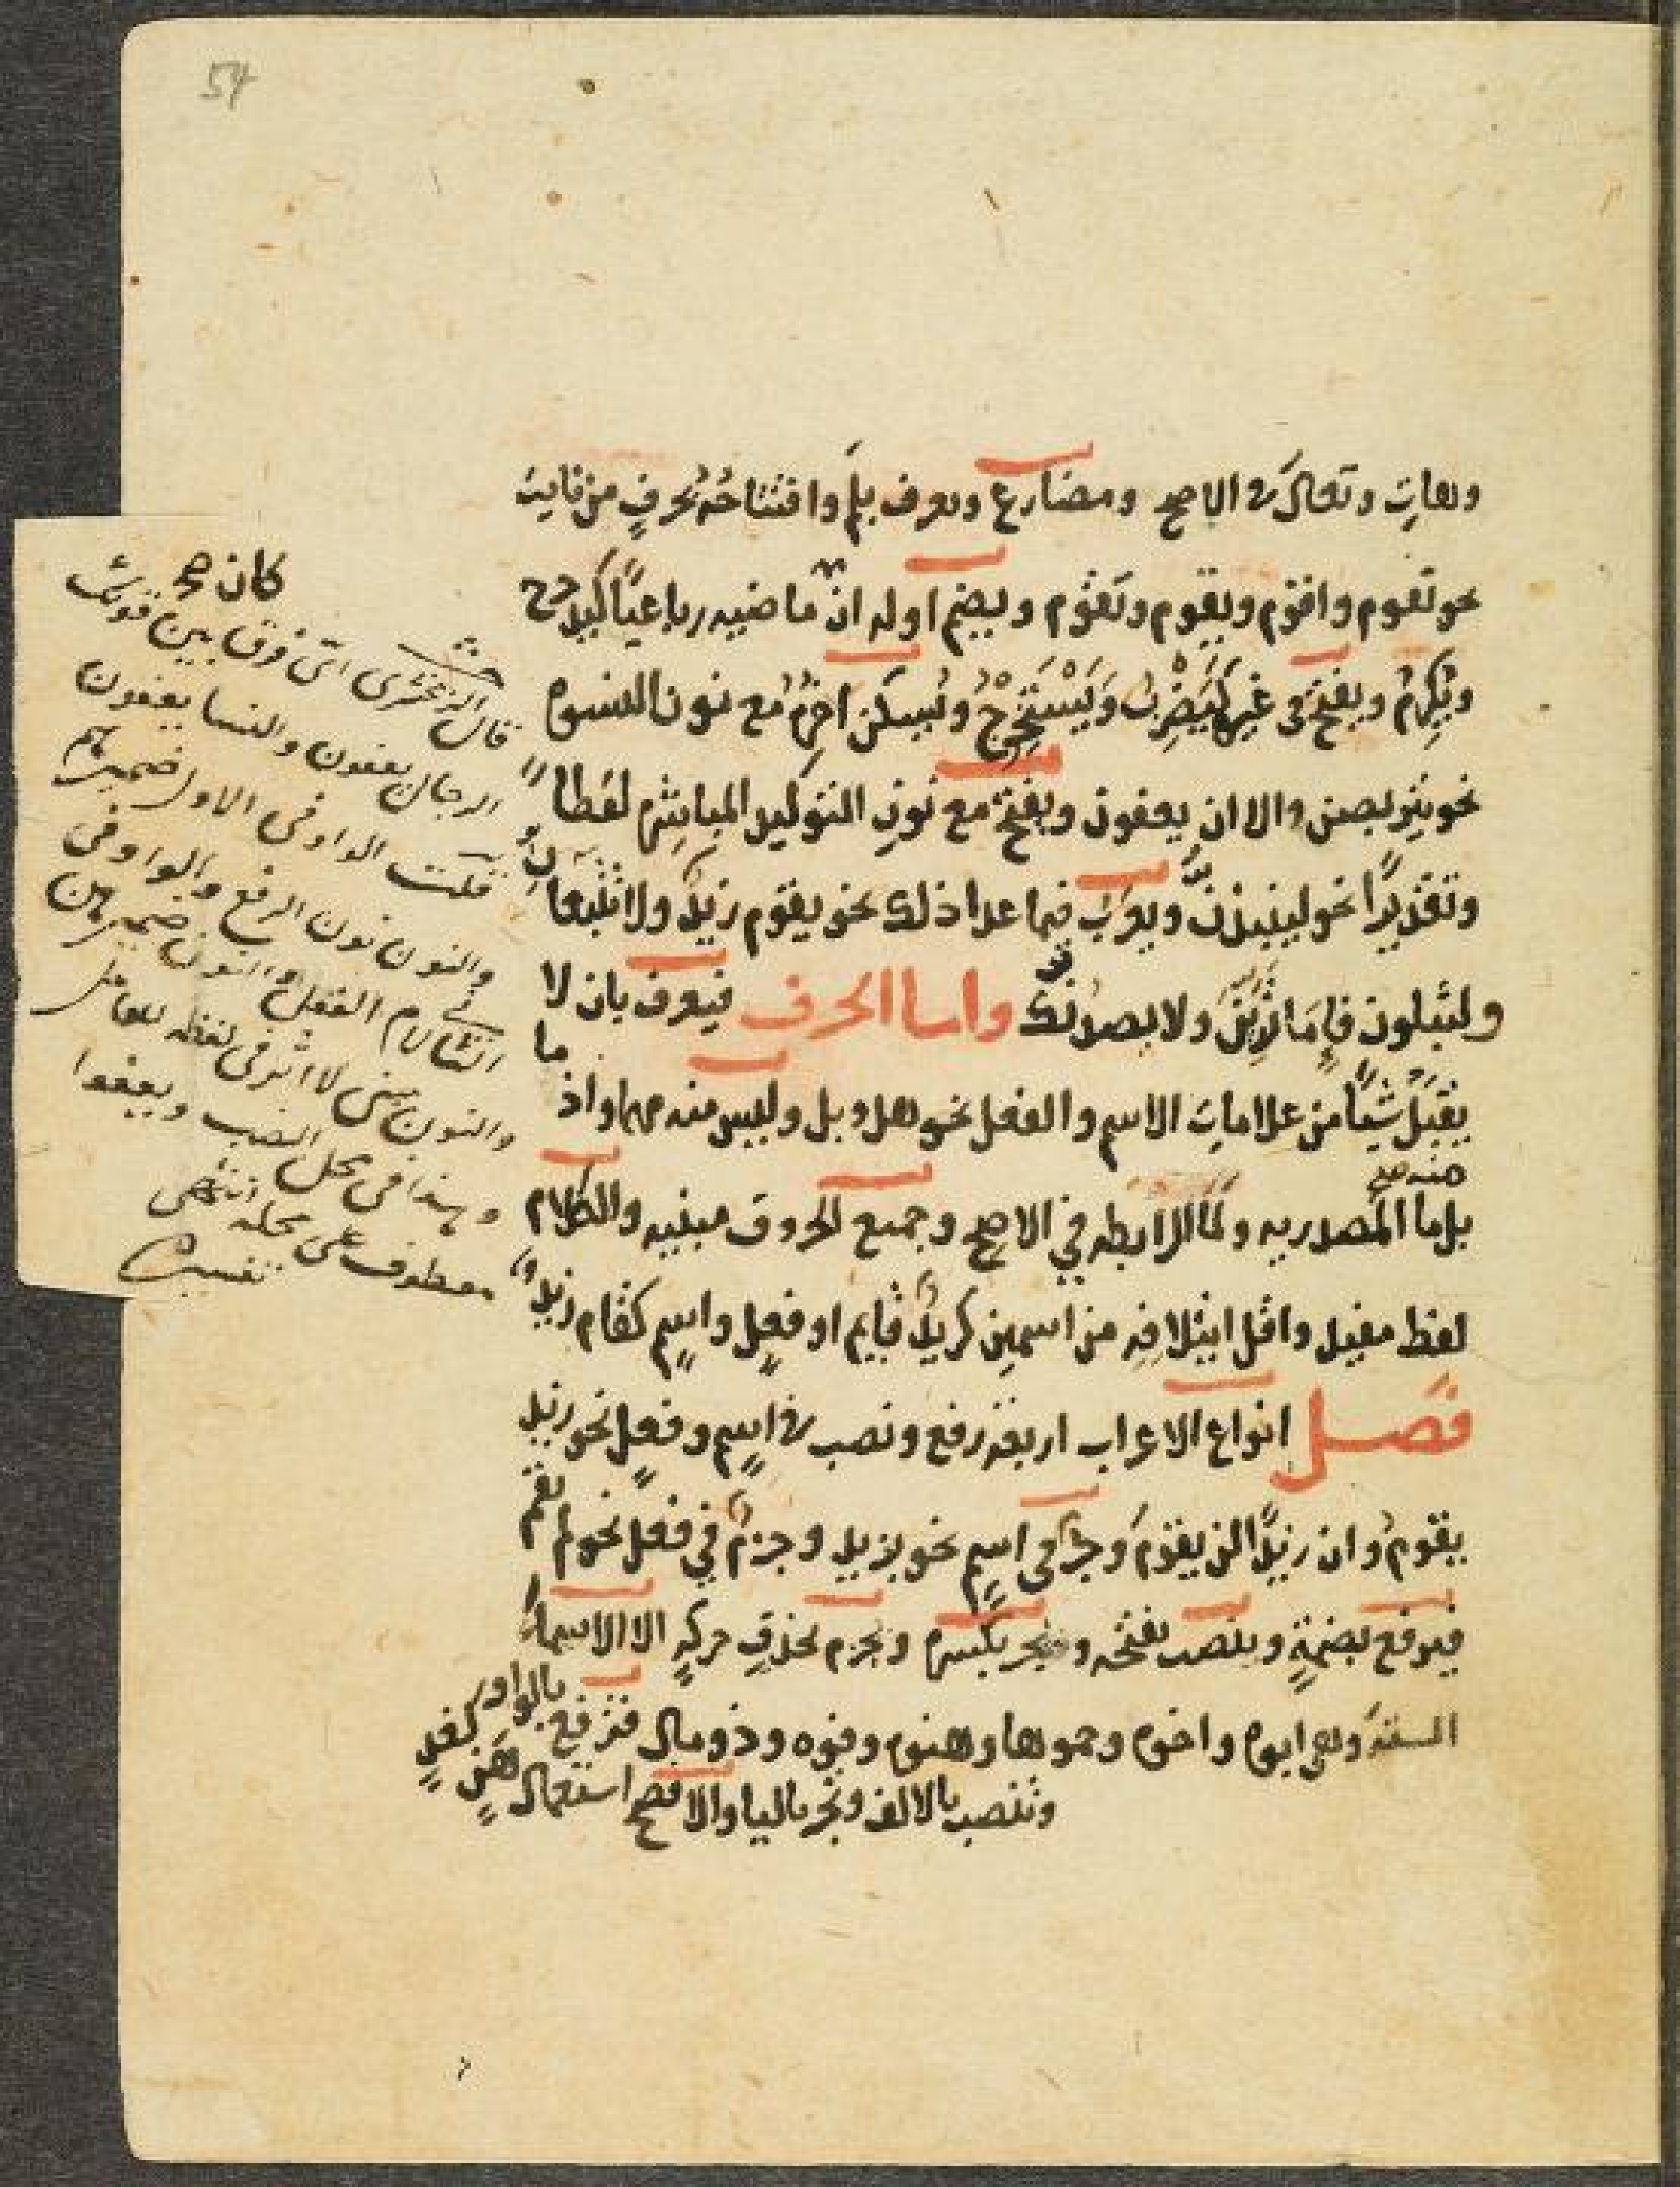 54
وهاتِ وتعالَ في الاصح ومضارع ويعرف بلم وافتتاحُهُ بحرفٍ من نايت
نحو نقوم واقوم ويقوم وتقوم ويضم اوله ان كان ماضيه رباعيًا كيدحرج
ويُكرِمُ ويفتح في غيرِه كيَضْرِبُ ويَسْتَخرِجُ ويُسكن اخرُه مع نون النسوه
نحو يتربصن والا ان يعفون ويفتح مع نونِ التوكيد المباشِره لفظًا
وتقديرًا نحو لينبذنَّ ويعرَبُ فيما عدا ذلك نحو يقوم زيدٌ ولا تتبعانِّ
ولتبلون فإما ترينَّ ولا يصدنك واما الحرف فيعرف بان لا
يقبَلَ شيأً من علاماتِ الاسم والفعل نحو هل وبل وليس منه مهما واذ ما
بل ما المصدريه منه صح ولمّا الرابطه في الاصح وجميع الحروف مبنيه والكلام
لفظ مفيد واقل ايتلافِه من اسمين كزيدٌ قايم او فعلٍ واسمٍ كقام زيدٌ
فصل انواع الاعراب اربعه رفع ونصب في اسمٍ وفعلٍ نحو زيد
يقومُ وان زيدًا لن يقومَ وجرٌ في اسمٍ نحو بزيد وجزمٌ في فعلٍ نحو لم يقم
فيرفع بضمةٍ وينصب بفتحه ويجر بكسره ويجزم بحذفِ حركهٍ الا الاسماءَ
الستهَ وهي ابوه واخوه وحموها وهنوه وفوه وذو مال فترفع بالواو
وتنصب بالالف وتجر باليا والافصح استعمال هَنٍ كغدٍ
كان صح
قال الزمخشرى اى فرق بين قولك
الرجال يعفون والنسا يعفون
قلت الواو فى الاول ضميرهم
والنون نون الرفع والواو فى
الثانى لام الفعل والنون ضميرهن
والنون مبنى لا اثر فى لفظه للعامل
وهذا فى محل النصب ويعفوا
معطوف على محله انتهى
تفسيره